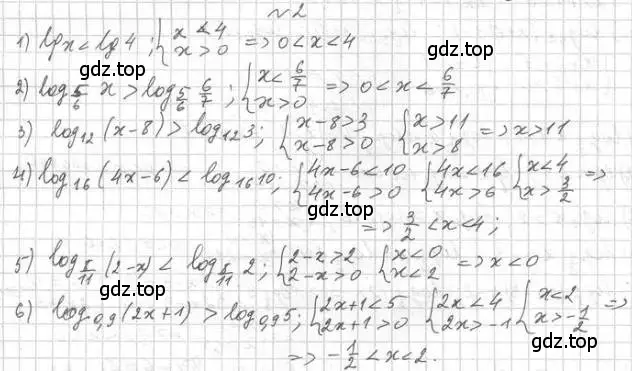 №2
1) lg x < lg 4; { x < 4 x > 0 => 0 < x < 4
gdz.top gdz.top
2) log_{5/6} x > log_{5/6} 6/7; { x < 6/7 x > 0 => 0 < x < 6/7
gdz.top gdz.top
3) log_{12} (x-8) > log_{12} 3; { x-8 > 3 x-8 > 0 { x > 11 x > 8 => x > 11
4) log_{16} (4x-6) < log_{16} 10; { 4x-6 < 10 4x-6 > 0 { 4x < 16 4x > 6 { x < 4 x > 3/2 =>
gdz.top
=> 3/2 < x < 4;
gdz.top gdz.top
5) log_{5/11} (2-x) < log_{5/11} 2; { 2-x > 2 2-x > 0 { x < 0 x < 2 => x < 0
6) log_{0,9} (2x+1) > log_{0,9} 5; { 2x+1 < 5 2x+1 > 0 { 2x < 4 2x > -1 { x < 2 x > -1/2 =>
gdz.top gdz.top
=> -1/2 < x < 2.
gdz.top